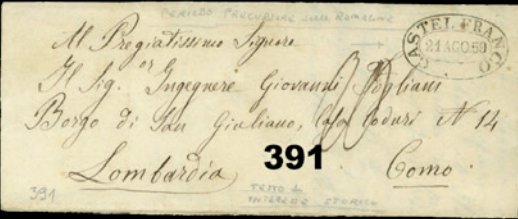 PERIODO PRECURSORE DELLE ROMAGNE
CASTEL FRANCO
21 AGO 59
Al Pregiatissimo Signore
Il Sig.or Ingegnere Giovanni Pogliani
Borgo di San Giuliano, Casa Coduri N 14
Lombardia
Como
391
391
TESTO DI
INTERESSE STORICO